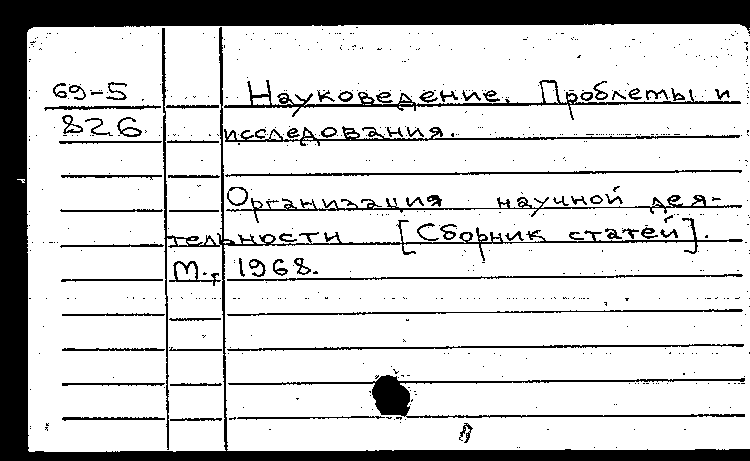 69-5 Науковедение. Проблемы и
826 исследования.
Организация научной дея-
тельности [Сборник статей].
М., 1968.